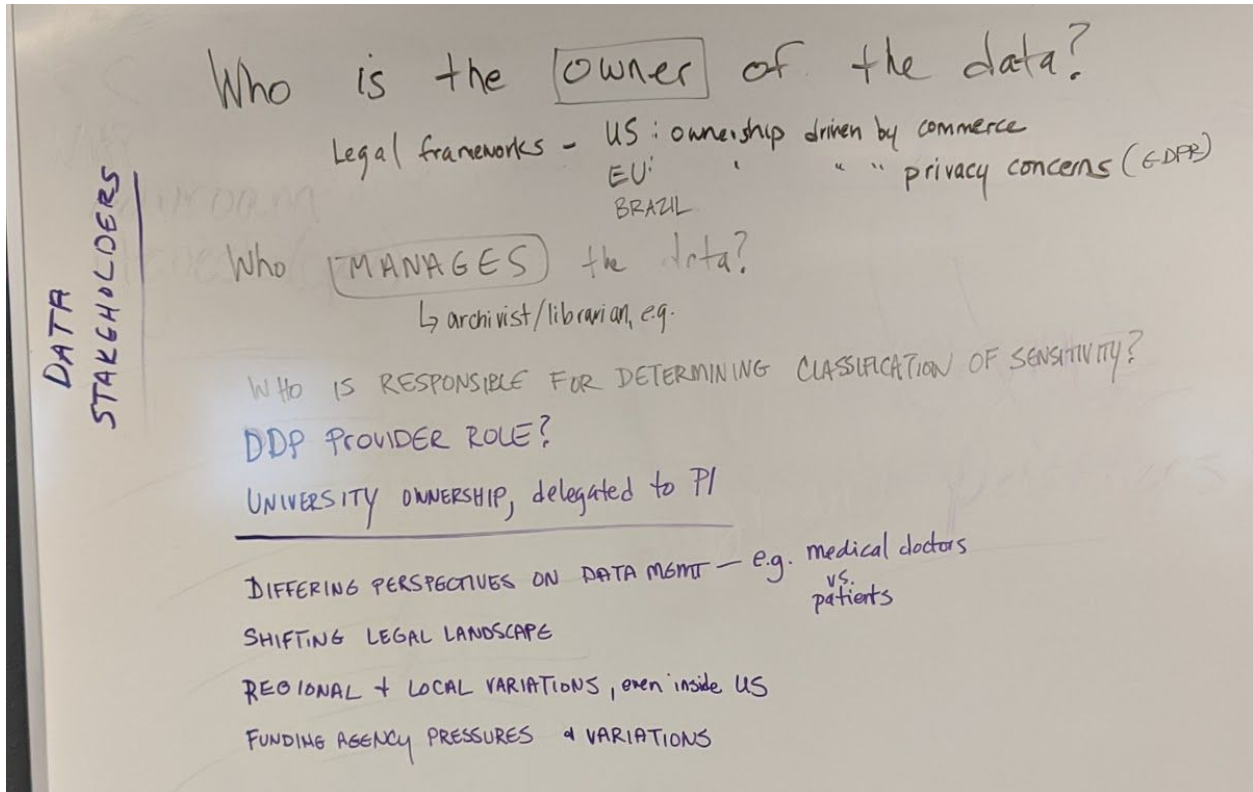 DATA
STAKEHOLDERS
Who is the owner of the data?
Legal frameworks - US: ownership driven by commerce
EU: " " " privacy concerns (GDPR)
BRAZIL
Who MANAGES the data?
↳ archivist/librarian, e.g.
WHO IS RESPONSIBLE FOR DETERMINING CLASSIFICATION OF SENSITIVITY?
DDP PROVIDER ROLE?
UNIVERSITY OWNERSHIP, delegated to PI
DIFFERING PERSPECTIVES ON DATA MGMT — e.g. medical doctors
vs.
patients
SHIFTING LEGAL LANDSCAPE
REGIONAL + LOCAL VARIATIONS, even inside US
FUNDING AGENCY PRESSURES & VARIATIONS